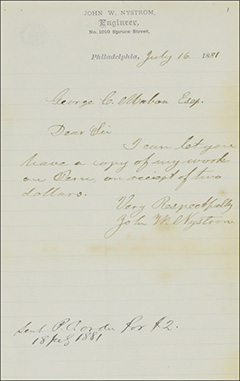 JOHN W. NYSTROM,
Engineer,
No. 1010 Spruce Street,
Philadelphia, July 16 1881
George C. Mahon Esq.
Dear Sir
I can let you
have a copy of my work
on on receipt of two
dollars.
Very Respectfully
John W. Nystrom
Sent P.O. order for $2.
18 1881